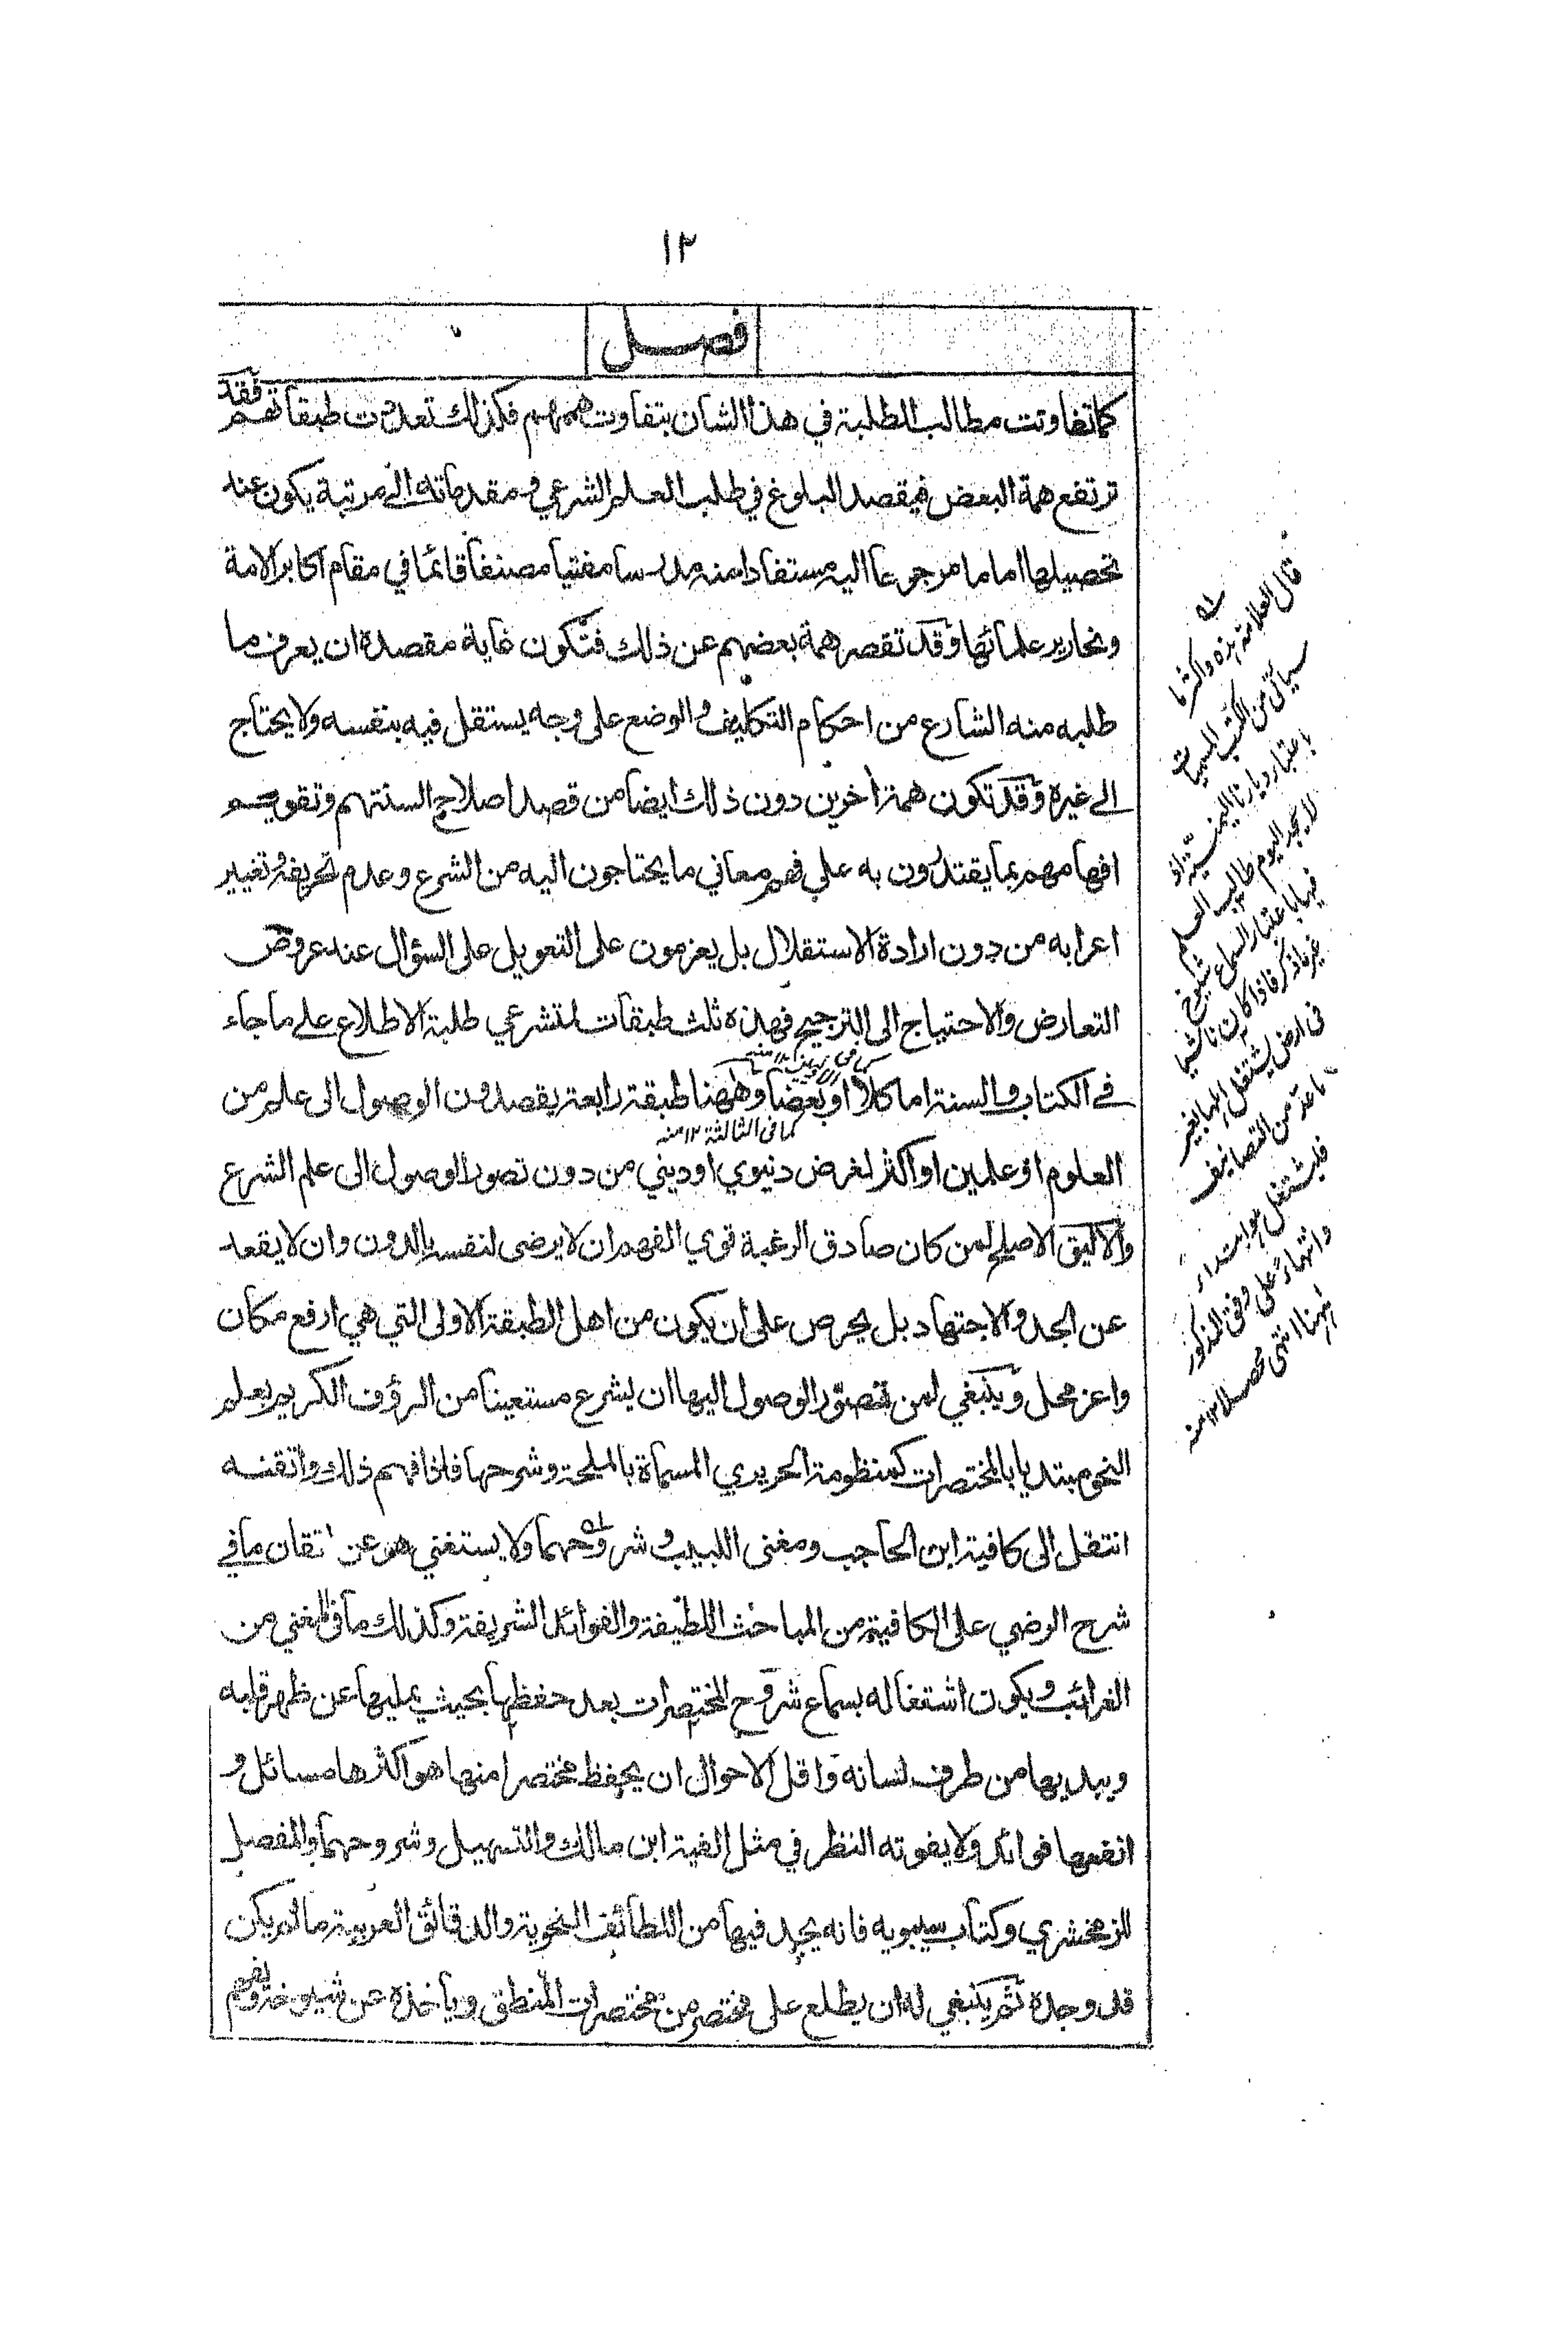 ١٢
فصل
كما تفاوتت مطالب الطلبة في هذا الشان بتفاوت هممهم فكذلك تعددت طبقاتهم فقد
ترتفع همة البعض فيقصد البلوغ في طلب العلم الشرعي ومقدماته الى مرتبة يكون عند
تحصيلها اماما مرجوعا اليه مستفادا منه مدرسا مفتيا مصنفا قائما في مقام اكابر الامة
ونحارير علمائها وقد تقصر همة بعضهم عن ذلك فتكون غاية مقصدة ان يعرف ما
طلبه منه الشارع من احكام التكليف والوضع على وجه يستقل فيه بنفسه ولا يحتاج
الى غيرة وقد تكون همة اخرين دون ذلك ايضا من قصد اصلاح السنتهم وتقويم
افهامهم بما يقتدرون به على فهم معاني ما يحتاجون اليه من الشرع وعدم تحريفه وتغيير
اعرابه من دون ارادة الاستقلال بل يعزمون على التعويل على السؤال عند عروض
التعارض والاحتياج الى الترجيح فهذه ثلث طبقات للمتشرعي طلبة الاطلاع على ما جاء
كما في الاوليين ١٢ منه
في الكتاب والسنة اما كلا او بعضا وههنا طبقة رابعة يقصدون الوصول الى علم من
كما في الثالثة ١٢ منه
العلوم او علمين او اكثر لغرض دنيوي او ديني من دون تصور الوصول الى علم الشرع
والاليق الاصلح لمن كان صادق الرغبة قوي الفهم ان لا يرضى لنفسه بالدون وان لا يقعد
عن الجد والاجتهاد بل يحرص على ان يكون من اهل الطبقة الاولى التي هي ارفع مكان
واعز محل وينبغي لمن تصور الوصول اليها ان يشرع مستعينا من الرؤف الكريم بعلم
النحو مبتديا بالمختصرات كمنظومة الحريري المسماة بالملحة وشرحها فاذا فهم ذلك واتقنه
انتقل الى كافية ابن الحاجب ومغنى اللبيب وشروحهما ولا يستغني هو عن اتقان ما في
شرح الرضي على الكافية من المباحث اللطيفة والفوائد الشريفة وكذلك ما في المغني من
الغرائب ويكون اشتغاله بسماع شروح المختصرات بعد حفظها بحيث يمليها عن ظهر قلبه
ويبديها من طرف لسانه واقل الاحوال ان يحفظ مختصرا منها هو اكثرها مسائل و
انفعها فوائد ولا يفوته النظر في مثل الفية ابن مالك والتسهيل وشروحهما والمفصل
للزمخشري وكتاب سيبويه فانه يجد فيها من اللطائف النحوية والدقائق العربية ما لم يكن
قد وجدة ثم ينبغي له ان يطلع على مختصر من مختصرات المنطق وياخذه عن شيوخه ويفهم
قال العلامة هذه واكثر ما
سياتي من الكتب المسميات
باعتبار ديارنا اليمنية اذ
لا يجد اليوم طالب العلم
فيها باعتبار السماع شيوخ
غير ما ذكر فاذا كان ناشيا
في ارض يشتغل اهلها بغير
ما عد من التصانيف
فليشتغل بها ابتداء
وانتهاء على وفق المذكور
ههنا انتهى محصلا ١٢ منه